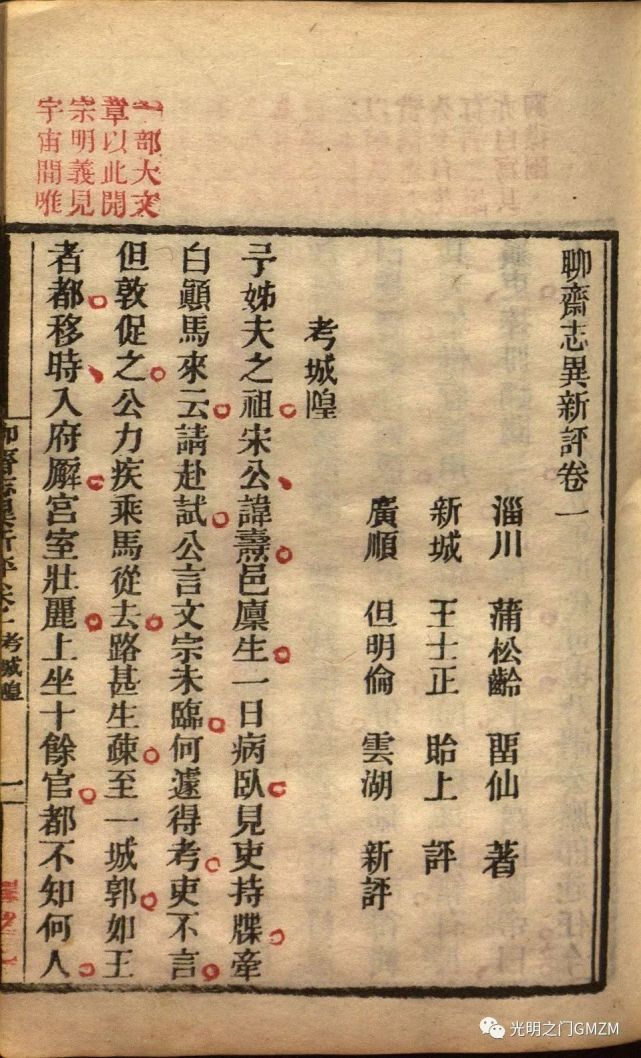 一部大文
章以此開
宗明義見
宇宙間唯
聊齋志異新評卷一
淄川 蒲松齡 畱仙 著
新城 王士正 貽上 評
廣順 但明倫 雲湖 新評
考城隍
予姊夫之祖宋公諱燾邑廩生一日病臥見吏持牒牽
白顚馬來云請赴試公言文宗未臨何遽得考吏不言
但敦促之公力疾乘馬從去路甚生疎至一城郭如王
者都移時入府廨宮室壯麗上坐十餘官都不知何人
聊齋志異新評卷一 考城隍 一
光明之门GMZM